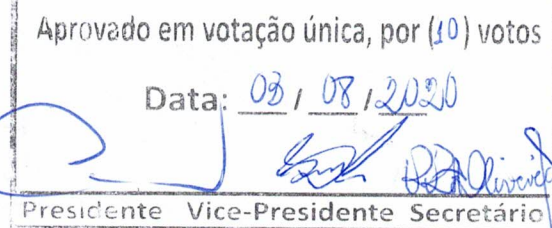 Aprovado em votação única, por (10) votos
Data: 03 / 08 / 2020
Presidente Vice-Presidente Secretário